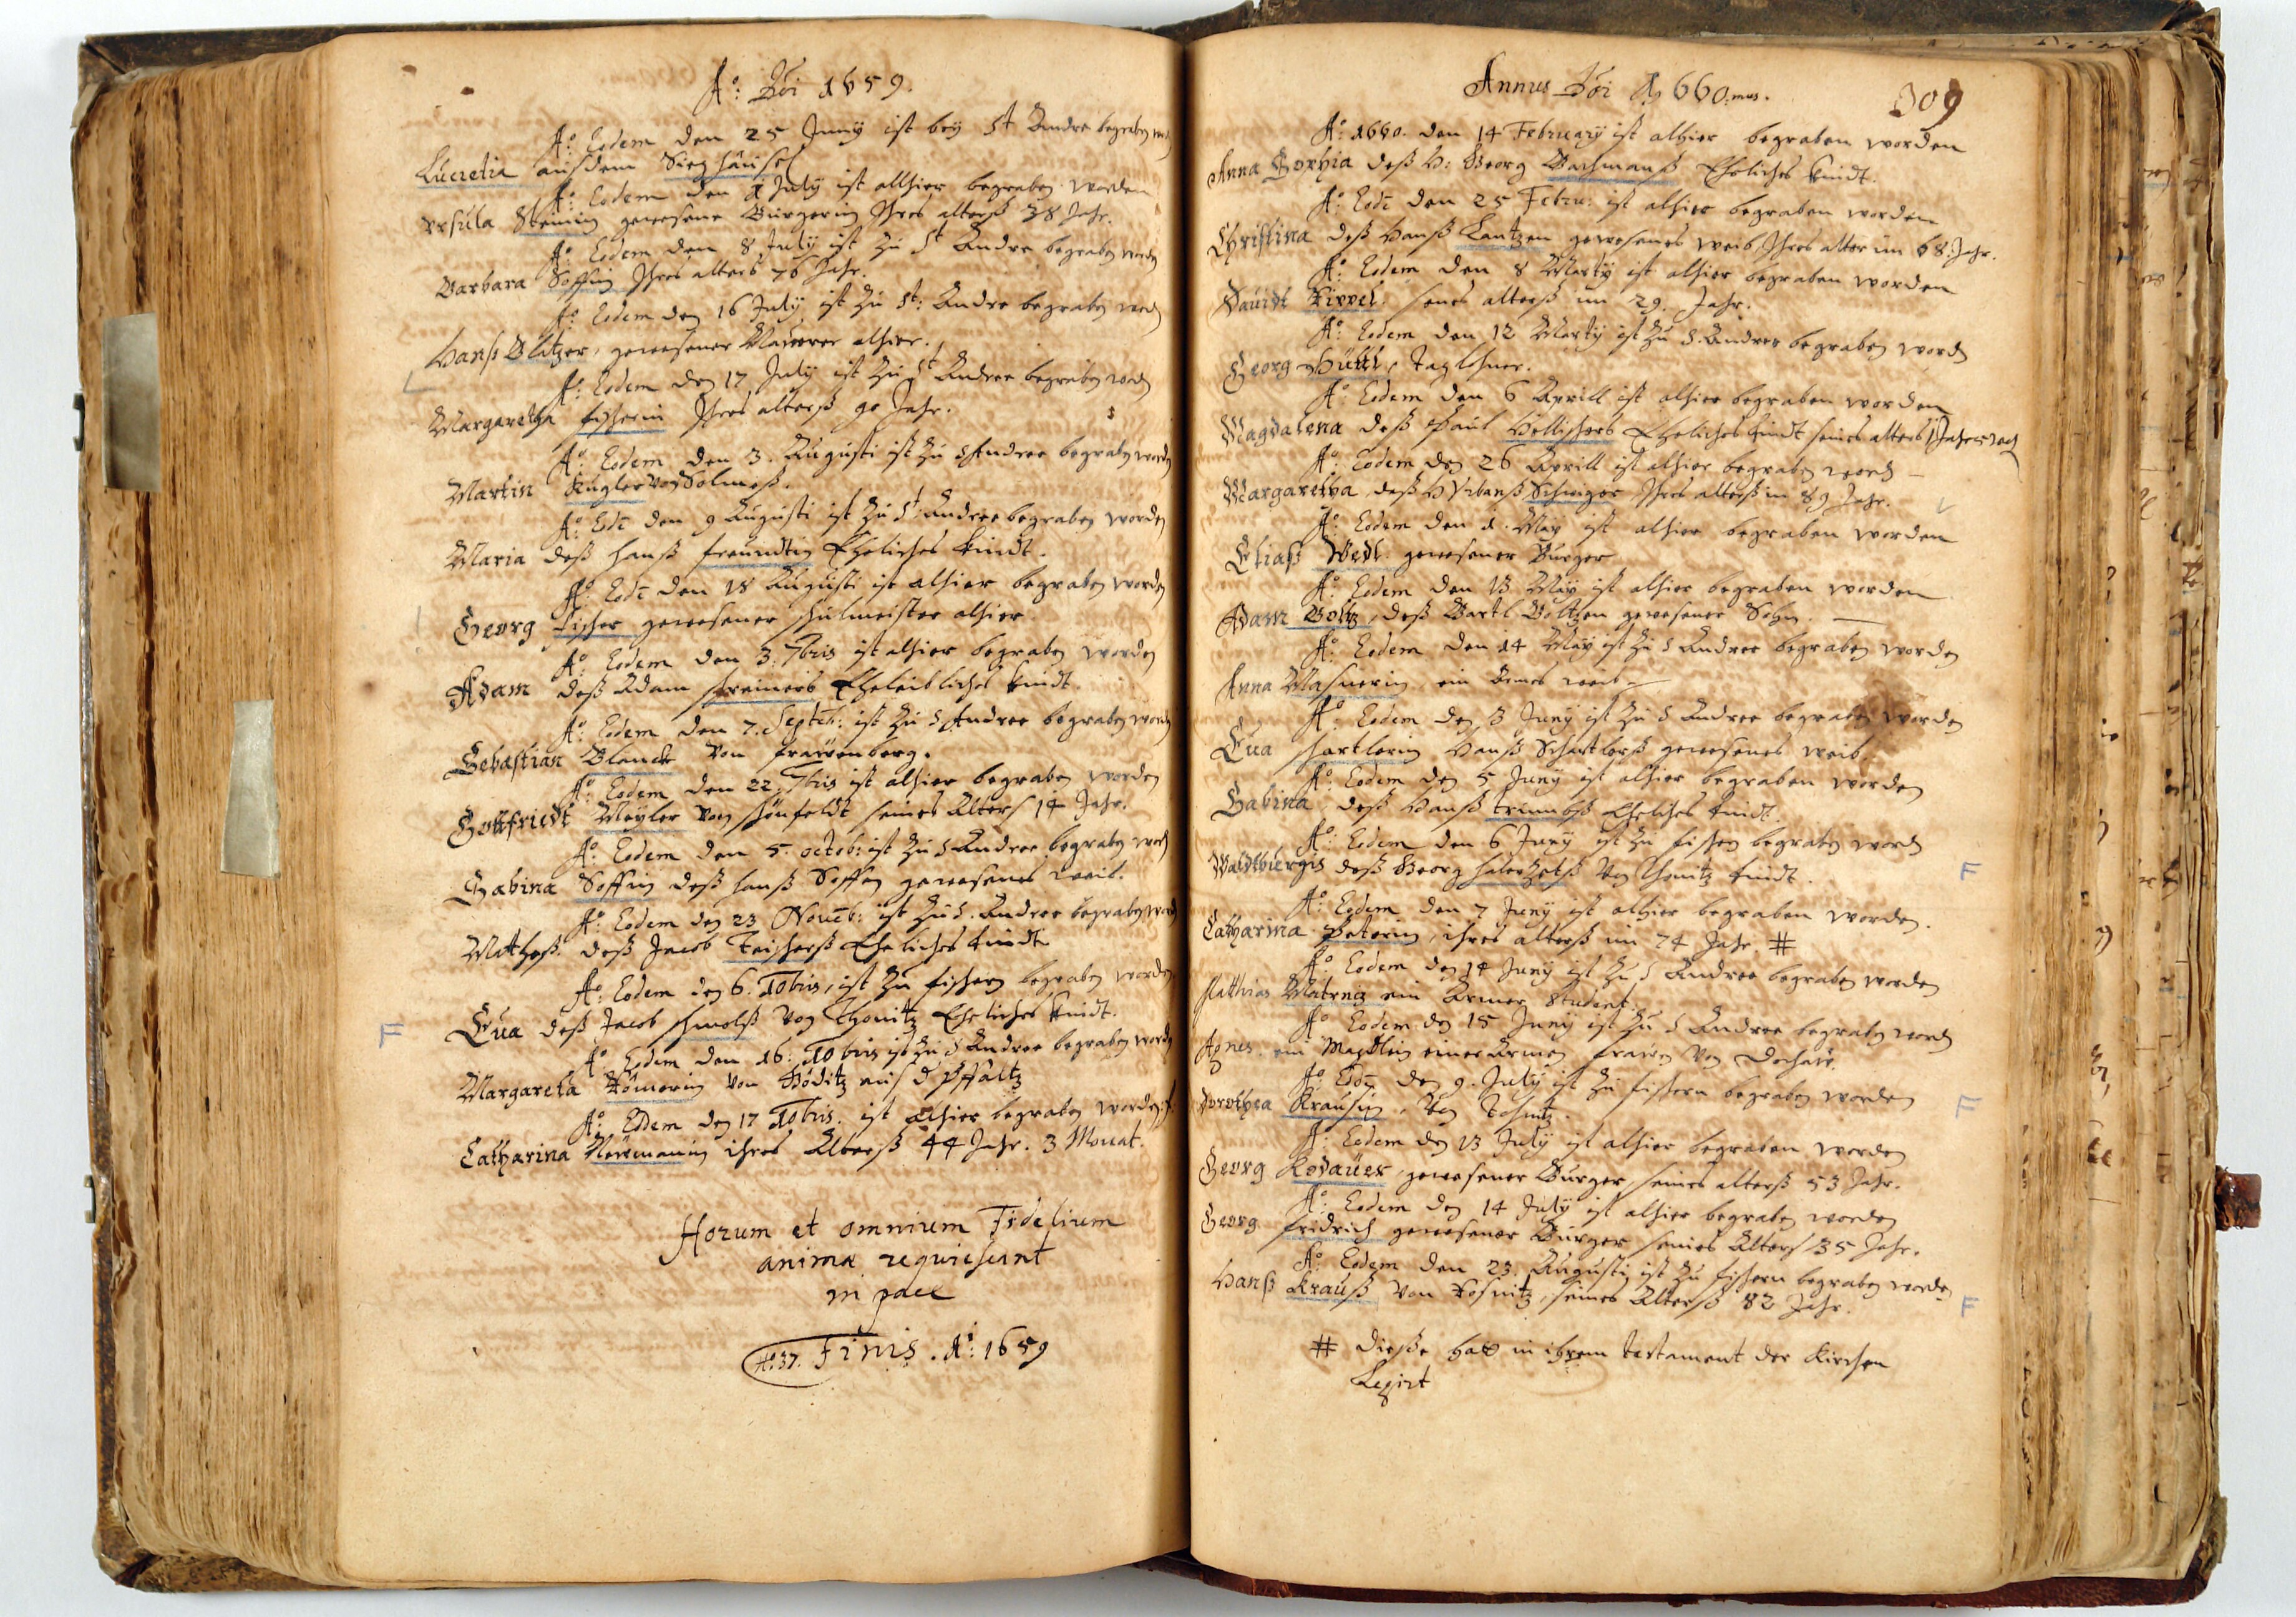 A°: Dni 1659.
A°: Eodem den 25 Juny ist bey St Andre begraben word
Lucretia aus dem Siegheüsel
A°: Eodem den 1 July ist allhier begraben worden
Vrsula Steinin gewesene Burgerin Ihres alterß 38 Jahr.
A°: Eodem den 8 July ist Zu St Andre begraben worden
Barbara Soffin Ihres alters 76 Jahr.
A°: Eodem den 16 July ist Zu St: Andre begraben word
Hanß Blitzer, gewesener Maurer alhier.
A°: Eodem den 17 July ist Zu St Andree begraben word
Margaretha fischerin Ihres alterß 90 Jahr.
A°: Eodem den 3. Augusti ist Zu S Andree begraben worden
Martin Kugler von Solmeß.
A°: Eod: den 9 Augusti ist Zu St Andree begraben worden
Maria deß Hanß freundtin Eheliches kindt.
A°: Eod: den 18 Augusti ist alhier begraben worden
Georg fischer gewesener schulmeister alhier
A°: Eodem den 3. 7bris ist alhier begraben worden
Adam deß Adam schreiners Eheleibliches kindt
A°: Eodem den 7. Septeb: ist Zu S Andree begraben worden
Sebastian Blanck von frauenberg.
A°: Eodem den 22. 7bris ist alhier begraben worden
Gottfriedt Meyler von schönfeldt seines Alters 14 Jahr.
A°: Eodem den 5. octob: ist Zu S Andree begraben word
Sabina Soffin deß Hanß Soffen gewesenes weib.
A°: Eodem den 23 Noueb: ist Zu S. Andree begraben word
Matheß. deß Jacob Teischerß Eheliches kindt
A°: Eodem den 6. 10bris, ist Zu fischern begraben worden
F Eua deß Jacob schmolß von Thonitz Eheliches kindt.
A°: Eodem den 16: 10bris ist Zu S Andree begraben worden
Margareta Römerin von Böditz aus d Pfaltz
A°: Eodem den 17 10bris. ist Alhier begraben worden
Catharina Nörmanin ihres Alterß 44 Jahr. 3 Monat.
Horum et omnium Fidelium
animæ requiescant
in pace
N°: 37. Finis. A°: 1659
Annus Dni 1660.mus.
309
A°: 1660. den 14 February ist alhier begraben worden
Anna Sophia deß H: Georg Bachmanß Eheliches kindt.
A°: Eod: den 25 Febru: ist alhier begraben worden
Christina deß Hanß Lantzen gewesenes weib Ihres alter im 68. Jahr.
A°: Eodem den 8 Marty ist alhier begraben worden
Dauidt Kippel. seines alterß im 29. Jahr.
A°: Eodem den 12 Marty ist Zu S. Andree begraben word
Georg Hüttl, Taglohner.
A°: Eodem den 6 Aprill ist alhier begraben worden
Magdalena deß Paul Hellischers Eheliches kindt seines alters
A°: Eodem den 26 Aprill ist alhier begraben word
Margaretha deß H Vrbanß Schwiger Ihres alterß im 89 Jahr.
A°: Eodem den 1. May ist alhier begraben worden
Eliaß Wedl. gewesener Burger
A°: Eodem den 13 May ist alhier begraben worden
Adam Boltz, deß Bartl Boltzen gewesener Sohn.
A°: Eodem den 14 May ist Zu S Andree begraben worden
Anna Masnerin, ein Armes weib
A°: Eodem den 3 Juny ist Zu S Andree begraben worden
Eua schartlerin Hanß Schartlerß gewesenes weib
A°: Eodem den 5 Juny ist alhier begraben worden
Sabina, deß Hanß Trumbß Eheliches kindt.
A°: Eodem den 6 Juny ist Zu fischern begraben word
Waldtburgis deß Georg haberzetß von Thonitz kindt. F
A°: Eodem den 7 Juny ist alhier begraben worden.
Catharina Peterin, ihres alterß im 74 Jahr. #
A°: Eodem den 14 Juny ist Zu S Andree begraben worden
Matthias Materniz ein Armer Student.
A°: Eodem den 15 Juny ist Zu S Andree begraben word
Agnes. ein Magdlein einer Armen frauen von Dachau
A°: Eod: den 9. July ist Zu fischern begraben worden
Dorothea Krausin, von Toschnitz. F
A°: Eodem den 13 July ist alhier begraben worden
Georg Kodauer, gewesener Burger seines alterß 53 Jahr.
A°: Eodem den 14 July ist alhier begraben worden
Georg fridrich gewesener Burger seines Alters 35 Jahr.
A°: Eodem den 23. Augusti ist Zu fischern begraben worden
Hanß Krauß von Roßnitz, seines Alterß 82 Jahr. F
# Diese hatt in ihrem Testament der Kirchen
Legirt